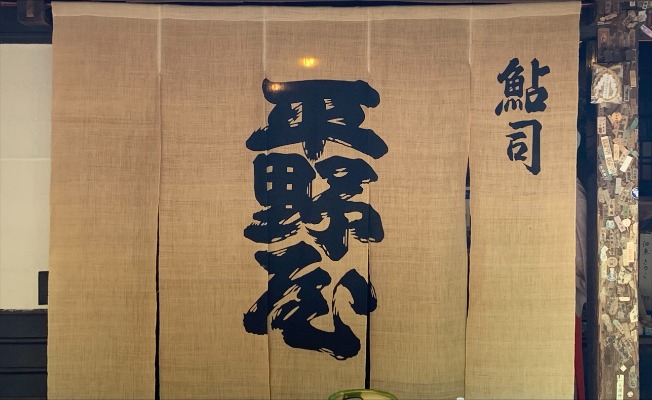 鮎司
平野屋